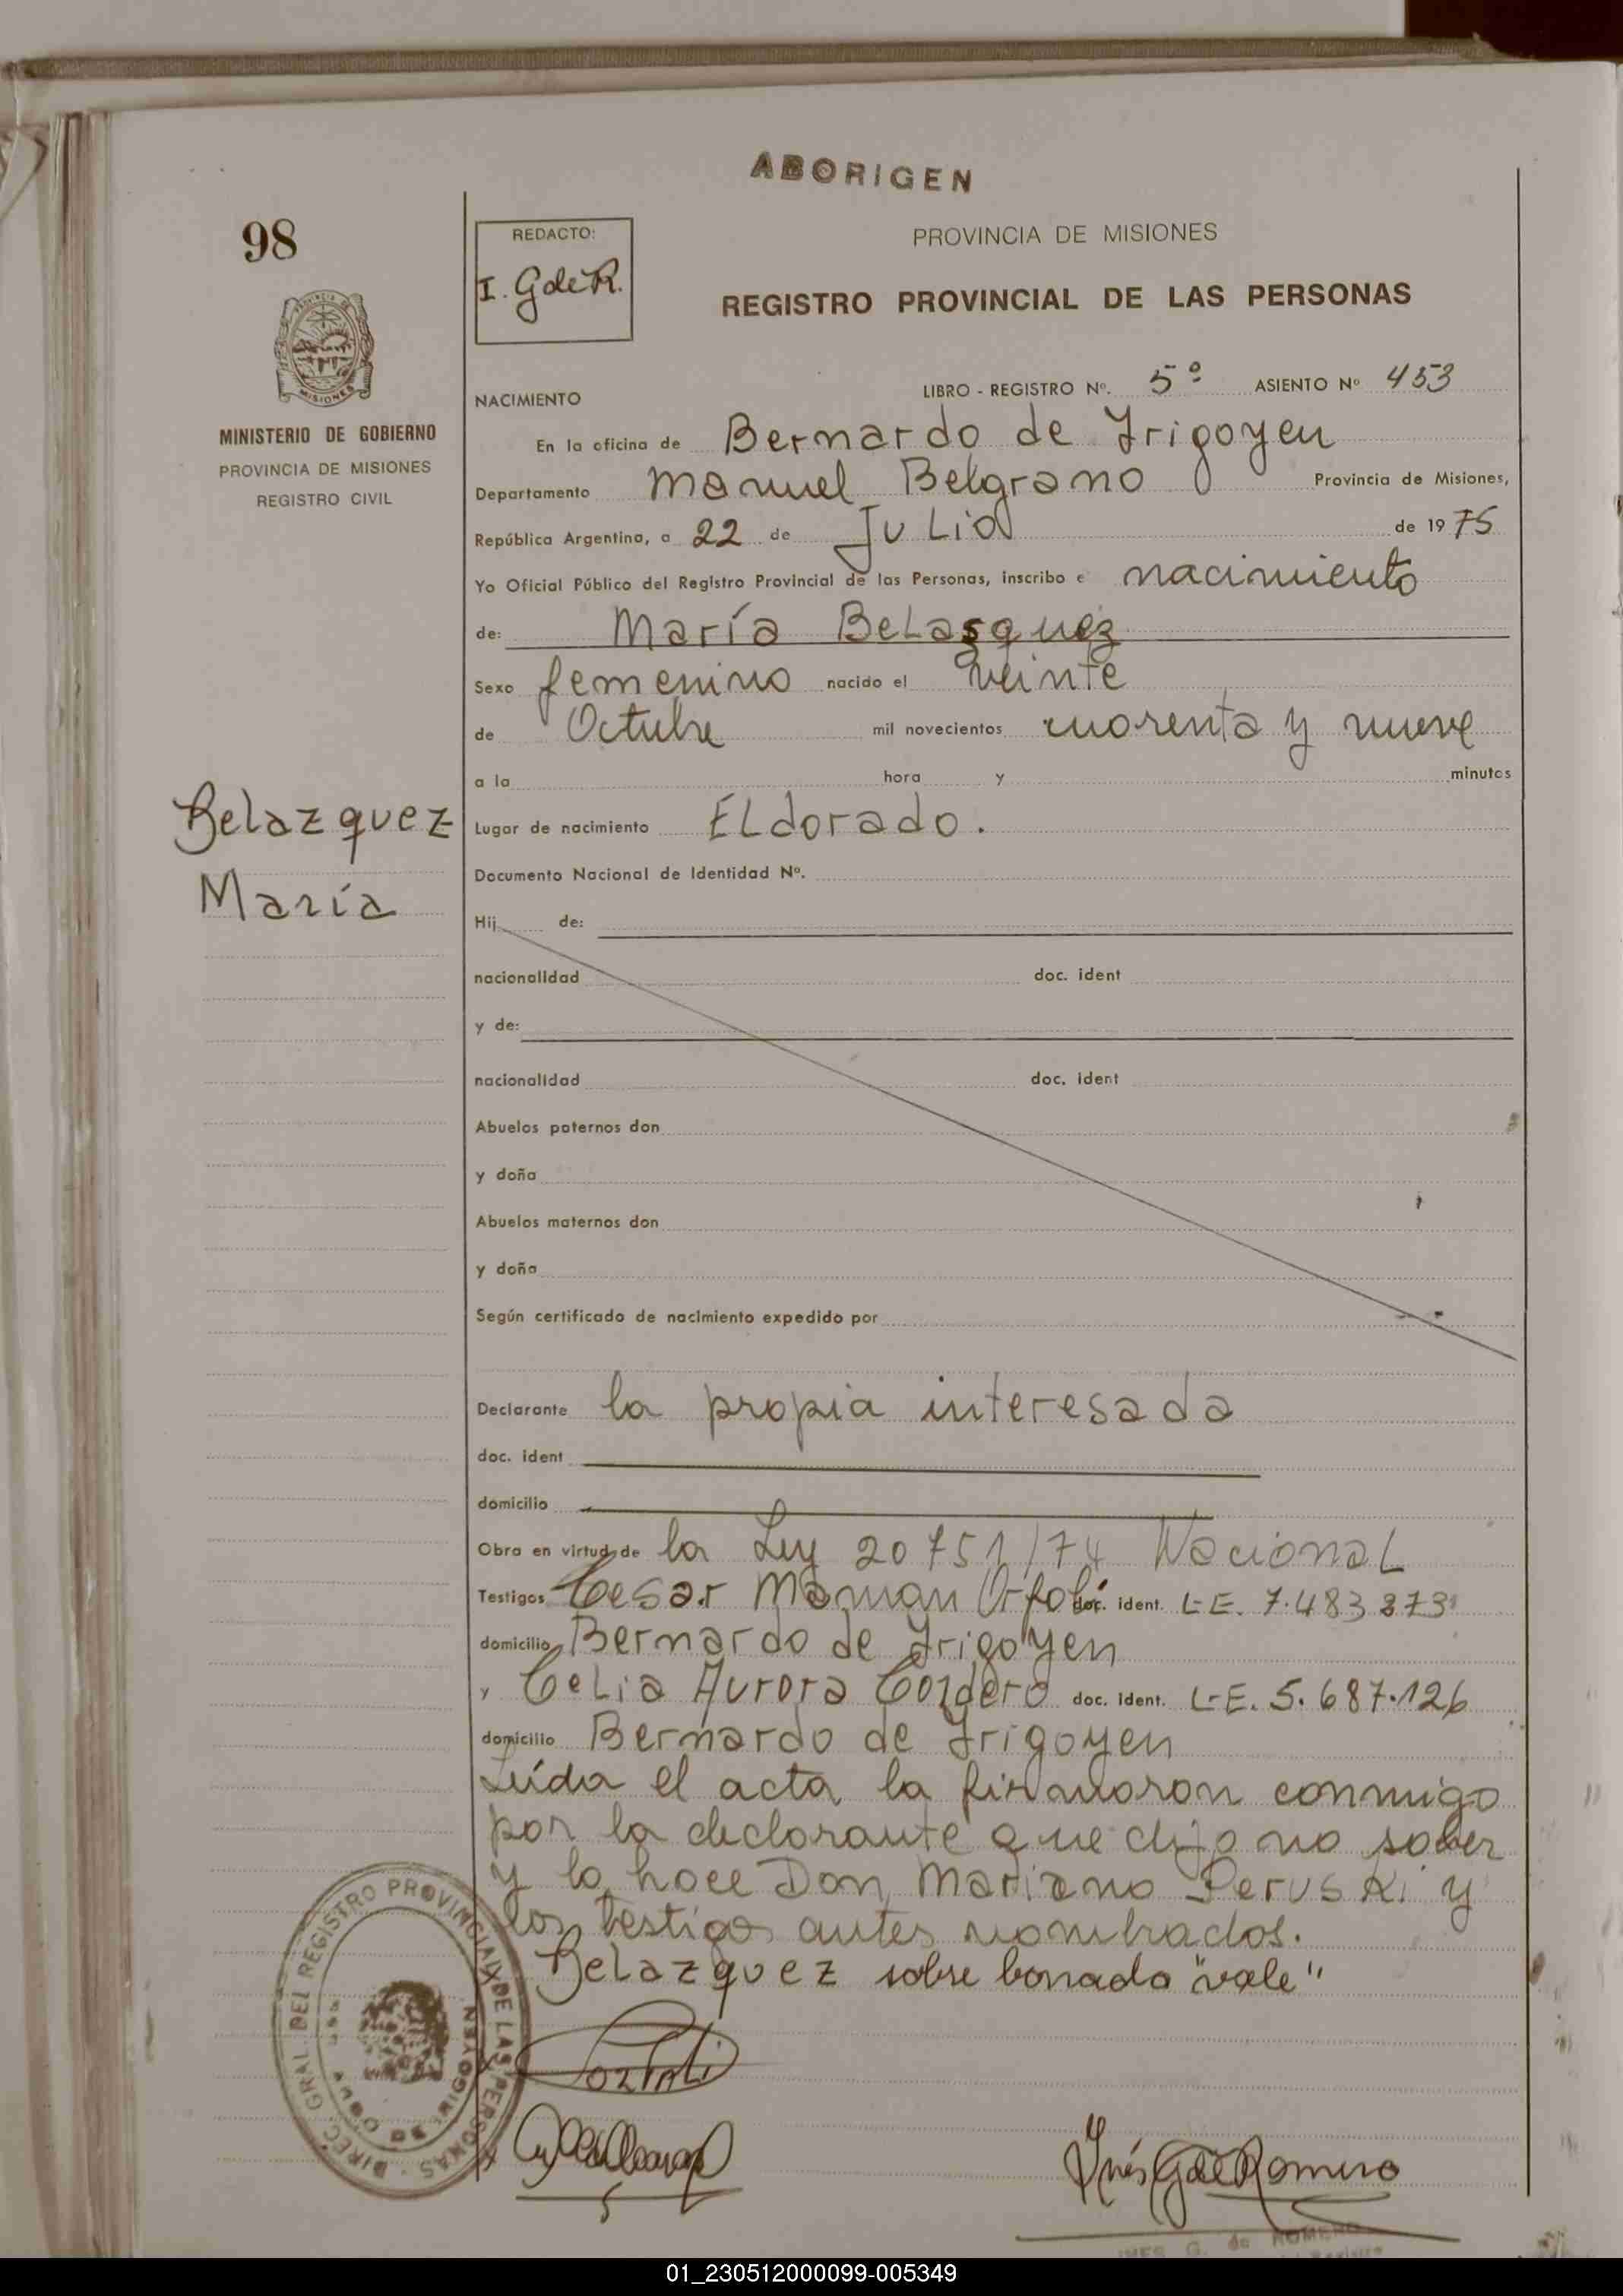 ABORIGEN
98
REDACTO:
I. GdeR.
PROVINCIA DE MISIONES
REGISTRO PROVINCIAL DE LAS PERSONAS
MISIONES
MINISTERIO DE GOBIERNO
PROVINCIA DE MISIONES
REGISTRO CIVIL
NACIMIENTO LIBRO - REGISTRO Nº. 5º ASIENTO Nº 453
En la oficina de Bernardo de Irigoyen
Departamento Manuel Belgrano Provincia de Misiones,
República Argentina, a 22 de Julio de 1975
Yo Oficial Público del Registro Provincial de las Personas, inscribo e nacimiento
de: María Belasquez
Sexo femenino nacido el veinte
de Octubre mil novecientos cuarenta y nueve
a la hora y minutos
Belazquez
María
Lugar de nacimiento ELdorado.
Documento Nacional de Identidad Nº.
Hij de:
nacionalidad doc. ident
y de:
nacionalidad doc. ident
Abuelos paternos don
y doña
Abuelos maternos don
y doña
Según certificado de nacimiento expedido por
Declarante la propia interesada
doc. ident
domicilio
Obra en virtud de la Ley 20751/74 Nacional
Testigos Cesar Maman doc. ident. L-E. 7.483873
domicilio Bernardo de Irigoyen
y Celia Aurora Cordero doc. ident. L-E. 5.687.126
domicilio Bernardo de Irigoyen
Leída el acta la firmaron conmigo
por la declarante que dijo no saber
y lo hace Don Mariano Peruski y
los testigos antes nombrados.
Belazquez sobre borrado "vale"
DIREC. GRAL. DEL REGISTRO PROVINCIAL DE LAS PERSONAS
Inés G de Romero
INES G. de ROMERO
01_230512000099-005349